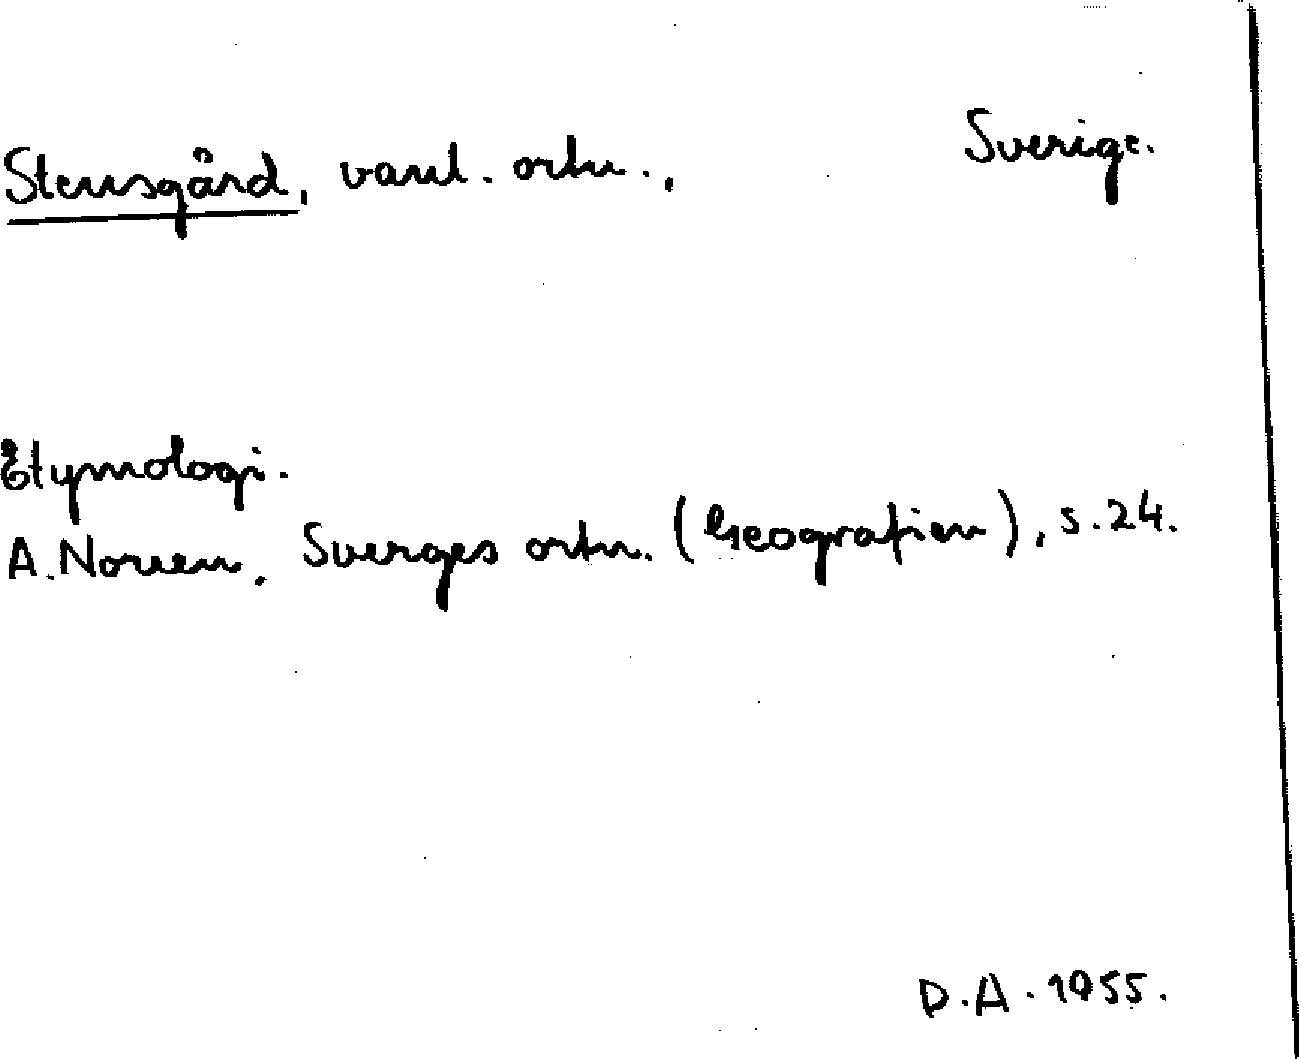 Stensgård, vanl. ortn., Sverige.
Etymologi.
A. Noreen, Sverges ortn. (Geografien), s. 24.
D.A. 1955.